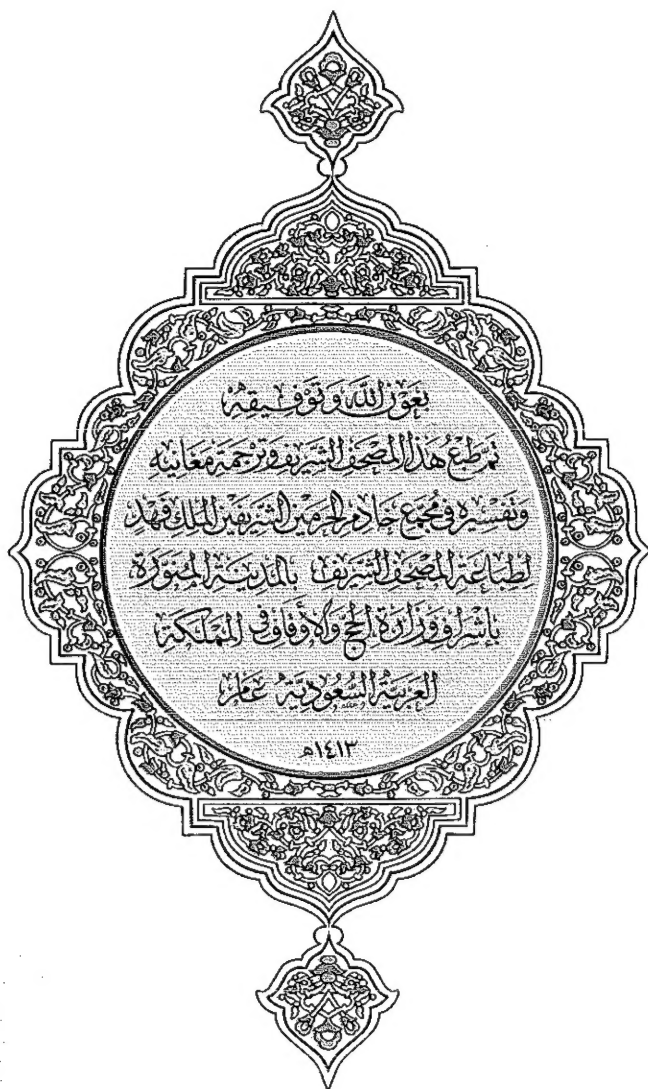 بعون الله وتوفيقه
تم طبع هذا المصحف الشريف وترجمة معانيه
وتفسيره في مجمع خادم الحرمين الشريفين الملك فهد
لطباعة المصحف الشريف بالمدينة المنورة
بإشراف وزارة الحج والأوقاف في المملكة
العربية السعودية عام
١٤١٣هـ